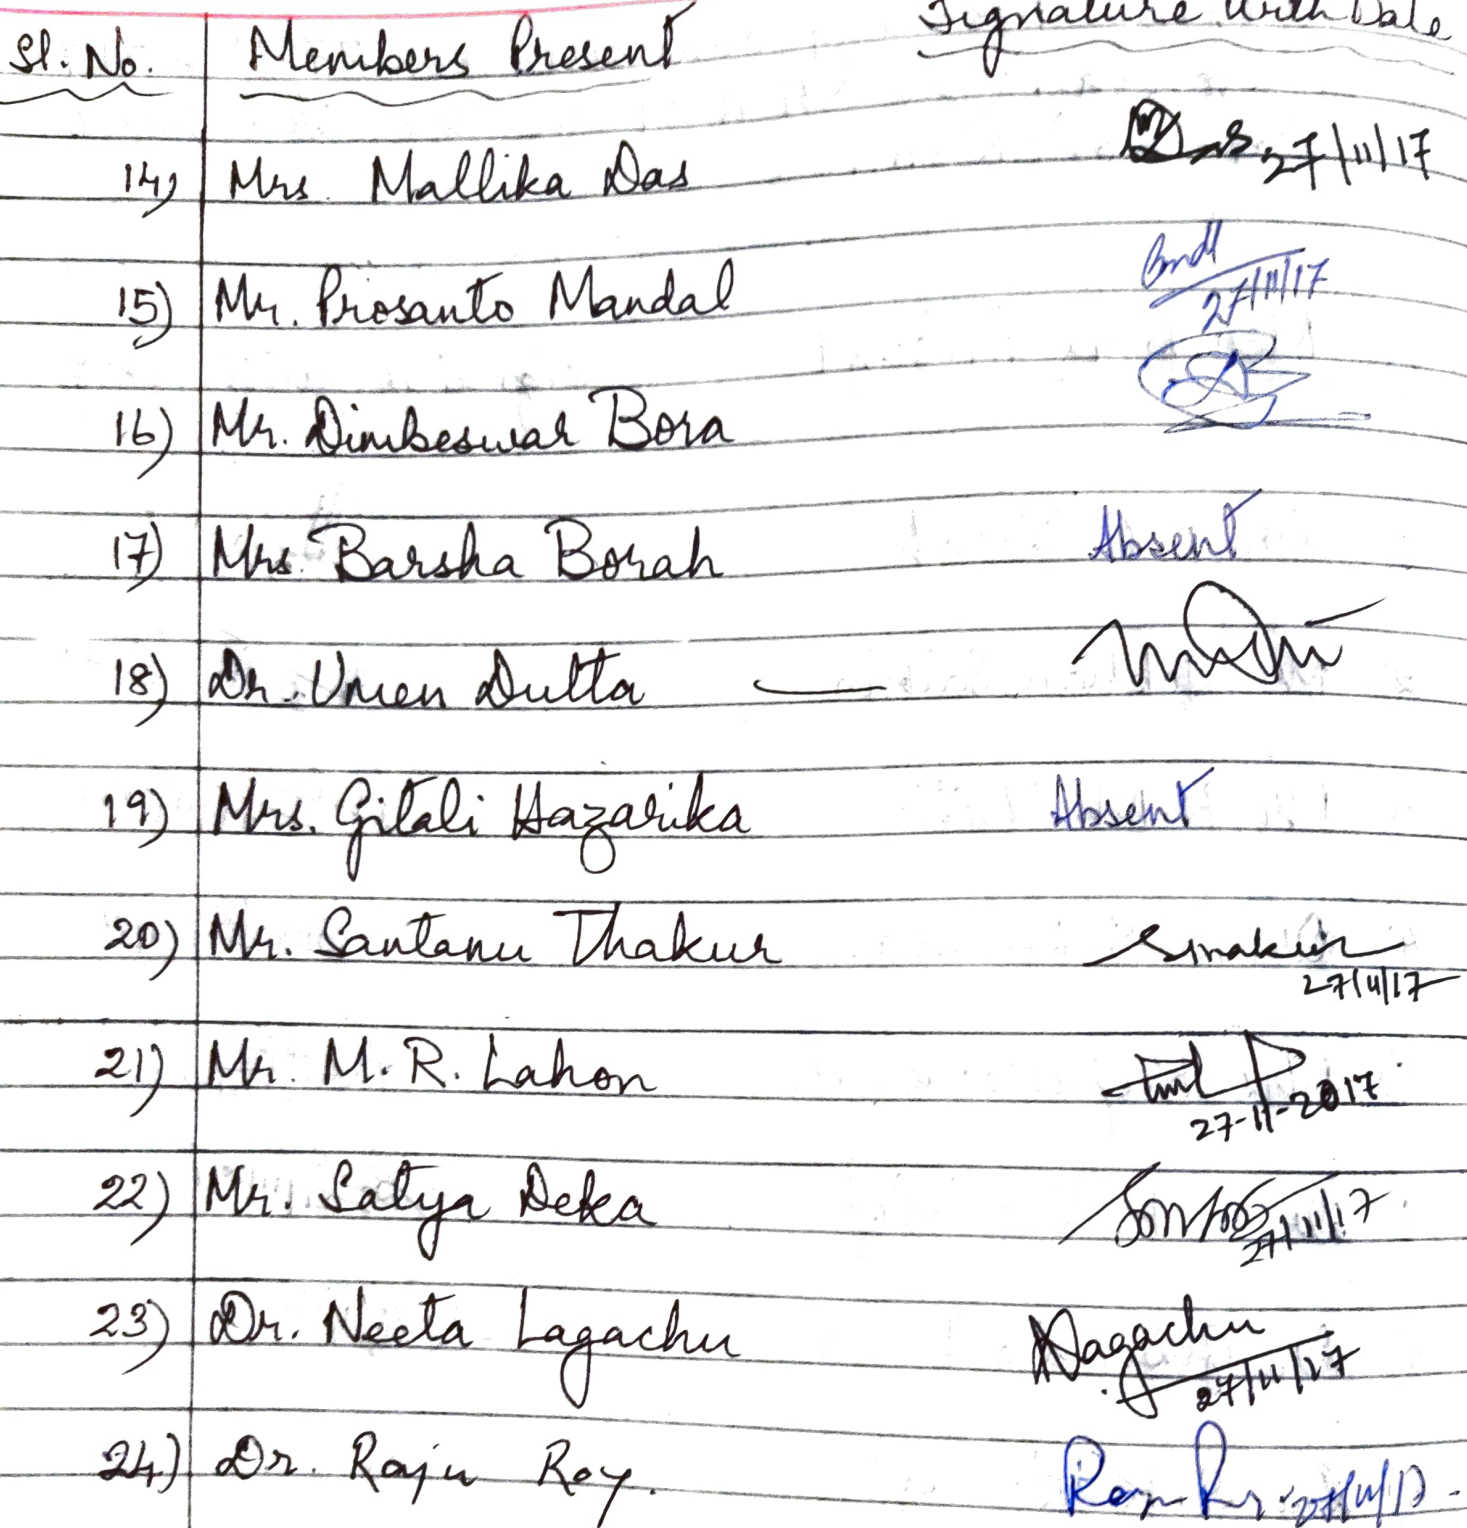 Sl. No. Members Present Signature with Date
14) Mrs. Mallika Das 27/11/17
15) Mr. Prosanto Mandal
27/11/17
16) Mr. Dimbeswar Bora
17) Mrs. Barsha Borah Absent
18) Dr. Umen Dutta —
19) Mrs. Gitali Hazarika Absent
20) Mr. Santanu Thakur
27/11/17
21) Mr. M. R. Lahon
27-11-2017
22) Mr. Satya Deka 27/11/17
23) Dr. Neeta Lagachu Nagachu
27/11/17
24) Dr. Raju Roy. 27/11/17